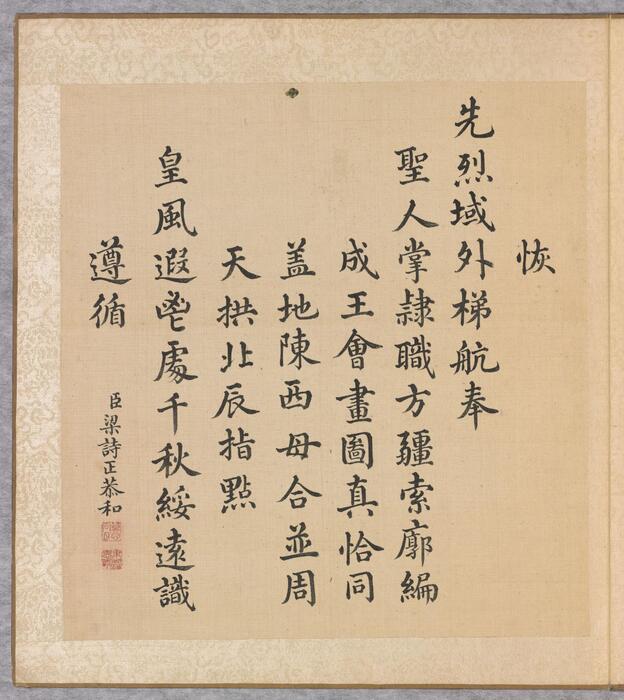 恢
先烈域外梯航奉
聖人掌隷職方疆索廓編
成王會畫圖真恰同
盖地陳西母合並周
天拱北辰指點
皇風遐鬯處千秋綏遠識
遵循
臣梁詩正恭和